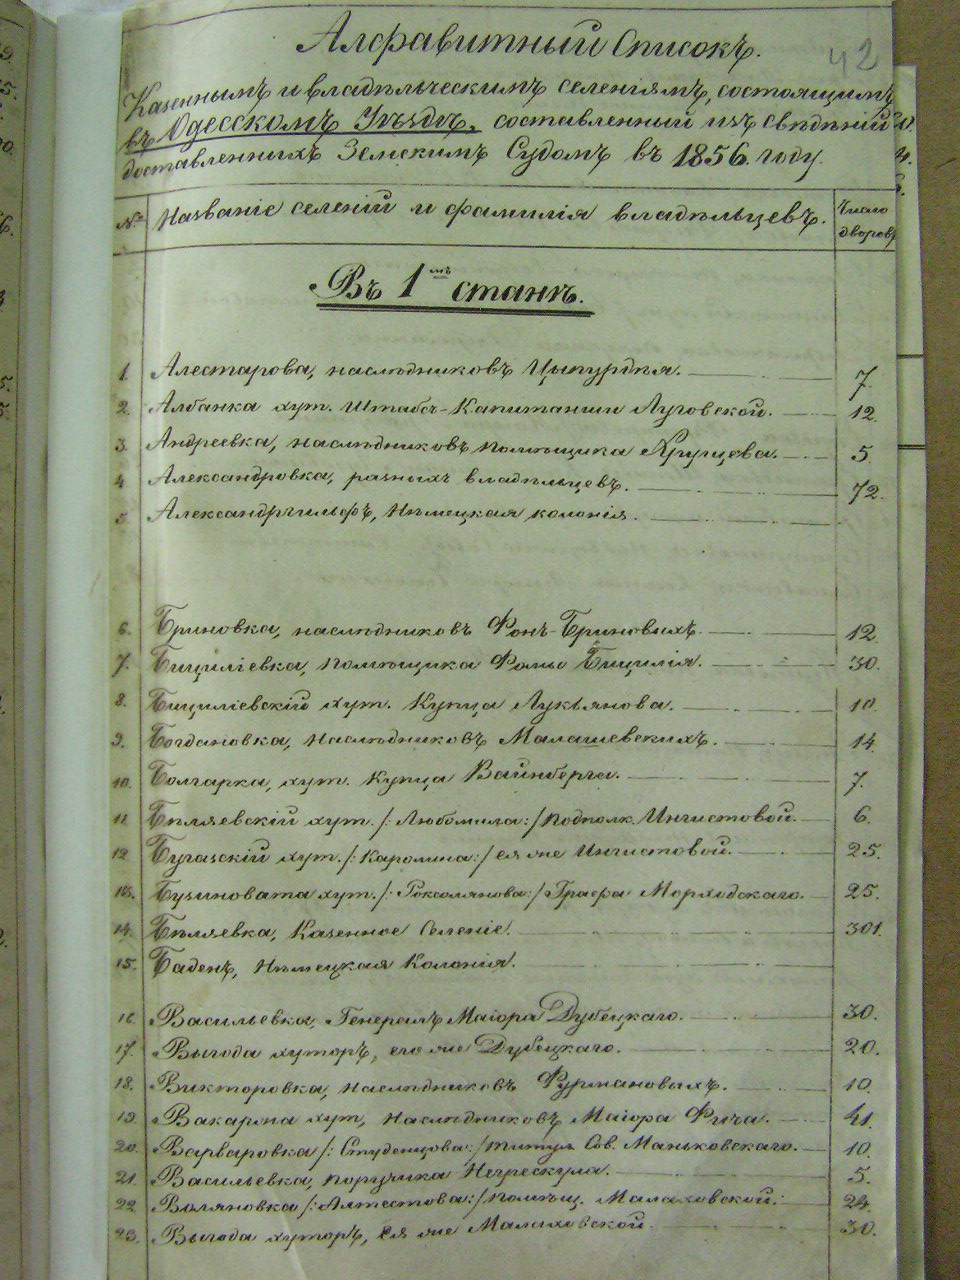 42
Алфавитный Списокъ.
Казеннымъ и владѣльческимъ селеніямъ, состоящимъ
въ Одесскомъ Уѣздѣ, составленный изъ свѣдѣній
доставленныхъ Земскимъ Судомъ въ 1856 году.
№ Названіе селеній и фамилія владѣльцевъ. Число дворовъ
Въ 1мъ станѣ.
1. Алестарова, наслѣдниковъ 7
2. Албанка хут. Штабсъ-Капитанши Луговской. 12.
3. Андреевка, наслѣдниковъ помѣщика 5.
4. Александровка, разныхъ владѣльцевъ. 72.
5. Александргильфъ, Нѣмецкая колонія.
6. Бриновка, наслѣдниковъ Фонъ-Бриновыхъ. 12.
7. Бициліевка, помѣщика Фомы Бициліа. 30.
8. Бициліевскій хут. Купца Лукьянова. 10.
9. Богдановка, Наслѣдниковъ Малашевскихъ. 14.
10. Болгарка, хут. Купца Вайнберга. 7.
11. Бѣляевскій хут. /: Любомила :/ Подполк. Ингистовой. 6.
12. Бугазскій хут. /: Каролина :/ ея же Ингистовой. 25.
13. Бузиновата хут. /: Роксолянова :/ Графа 25.
14. Бѣляевка, Казенное Селеніе. 301.
15. Баденъ, Нѣмецкая Колонія.
16. Васильевка, Генералъ Маіора Дубецкаго. 30.
17. Выгода хуторъ, его же Дубецкаго. 20.
18. Викторовка, наслѣдниковъ Фурмановыхъ. 10.
19. Вакаржа хут, Наслѣдниковъ Маіора Фича. 41.
20. Варваровка /: Студенцова :/ титул. Сов. Маньковскаго. 10.
21. Васильевка, поручика Негрескула. 5.
22. Воляновка /: Алтестова :/ помѣщ. Малаховской. 24.
23. Выгода хуторъ, Ея же Малаховской. 30.